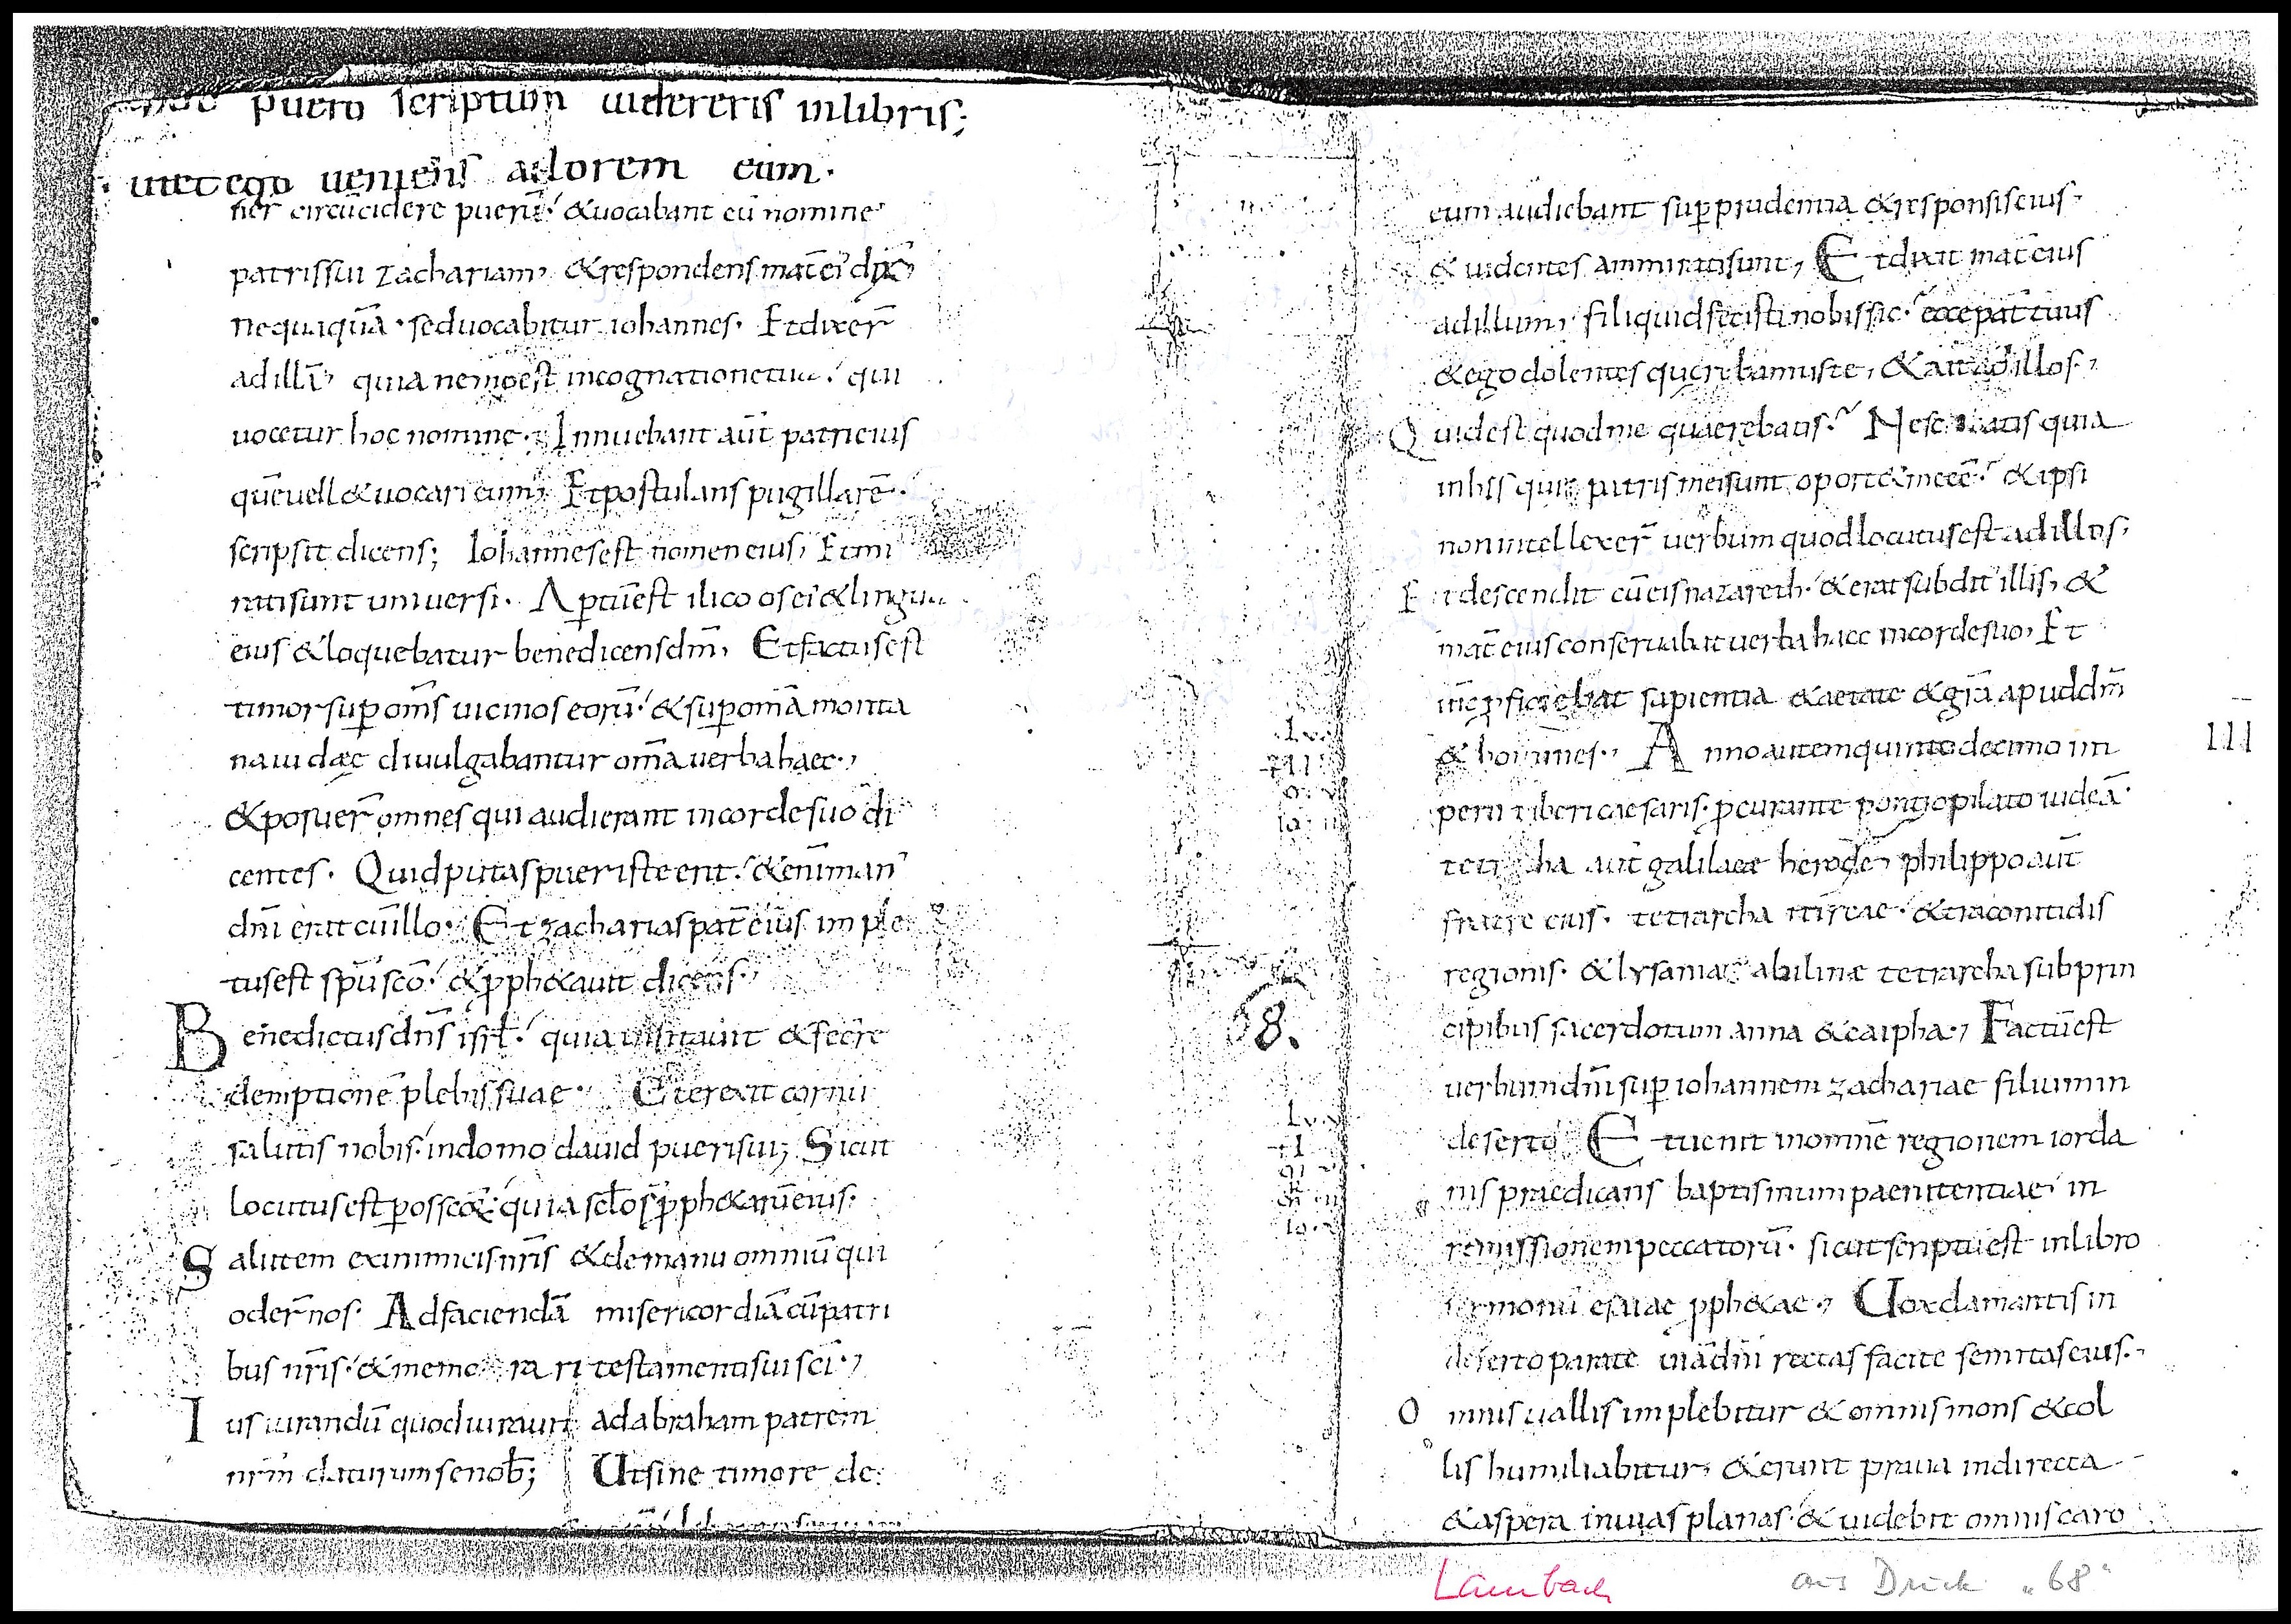 puero scriptum uidereris inlibris;
utetego ueniens adorem eum.
ner circūcidere puerū. &uocabant eū nomine
patrissui zachariam, &respondens mat̄ ei' dix̄
nequaquā. seduocabitur iohannes. Etdixer̄
adillā, quia nemoest incognationetua. qui
uocetur hoc nomine. Innuebant aūt patrieius
quēuell&uocari eum, Etpostulans pugillarē.
scripsit dicens; Iohannesest nomen eius, Etmi
ratisunt uniuersi. Aptūest ilico os ei' &lingua
eius &loquebatur benedicensdm̄, Etfactusest
timorsup om̄s uicinos eorū. &sup om̄a monta
na iudęę diuulgabantur om̄a uerba haec.,
&posuer̄ omnes qui audierant incordesuo di
centes. Quidputaspueristeerit. &enīman'
dn̄i erat cūillo. Etzachariaspat̄ eius imple
tusest spū scō. &pph&auit dicens.,
Benedictusdn̄s isrł. quia uisitauit &fecit re
demptionē plebissuae. Eterexit cornu
salutis nobis. indomo dauid puerisui; Sicut
locutusest posscōꝝ. quia sclōs pph&arūeius.
Salutem exinimicisnr̄is &demanu omniū qui
oder̄nos. Adfaciendā misericordiācūpatri
bus nr̄is. &memo ra ri testamentisuisci.,
Iusiurandū quodiurauit adabraham patrem
nrm̄ daturumsenob̄; Utsine timore de
eum audiebant sup prudentia &responsiseius.
&uidentes ammiratisunt, Etdixit mat̄ eius
adillum, filiquidfecistinobissic. eccepat̄ tuus
&egodolentes querebamuste, &aitadillos.,
Quidest quodme quaerebatis. Nesciebatis quia
inhis quae patris meisunt oport&meēē. &ipsi
nonintellexer̄ uerbumquodlocutusest adillos,
Etdescendit cūeisnazareth. &eratsubdit' illis, &
mat̄ eiusconseruabat uerba haec incordesuo, Et
ih̄c pficiebat sapientia &aetate &gr̄a apuddm̄
&homines., Anno autemquintodecimo im
III
perii tiberi caesaris. pcurante pontiopilato iudeā.
tetrarcha aūt galilaeae herode, philippo aūt
fratre eius. tetrarcha itureae. &traconitidis
regionis. &lysania abilinę tetrarcha subprin
cipibus sacerdotum anna &caipha., Factūest
uerbumdn̄isup iohannem zachariae filiumin
deserto Etuenit inomnē regionem iorda
nis praedicans baptismumpaenitentiae in
remissionempeccatorū. sicutscriptūest inlibro
sermonū esaiae pph&ae., Uoxclamantis in
desertoparate uiādn̄i rectas facite semitaseius.
Omnisuallisimplebitur &omnismons &col
lis humiliabitur, &erunt praua indirecta
&aspera inuias planas. &uidebit omniscaro
68.
Lambach
aus Druck "68"